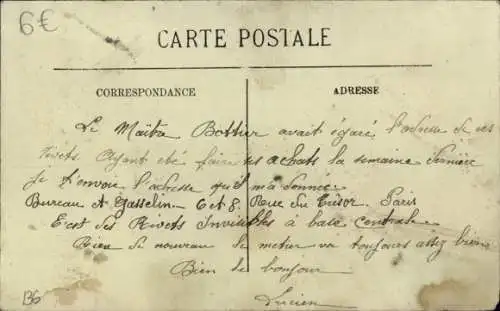 6€
CARTE POSTALE
CORRESPONDANCE
ADRESSE
Le Maître Bottier avait égaré l'adresse de ces
rivets. Ayant été faire ses achats la semaine dernière
je t'envoie l'adresse qu'il m'a donnée
Bureau et Gasselin. 6 et 8. Rue du Trésor. Paris
C'est des Rivets Invisibles à base centrale
Rien de nouveau le metier va toujours assez bien
Bien le bonjour
Lucien